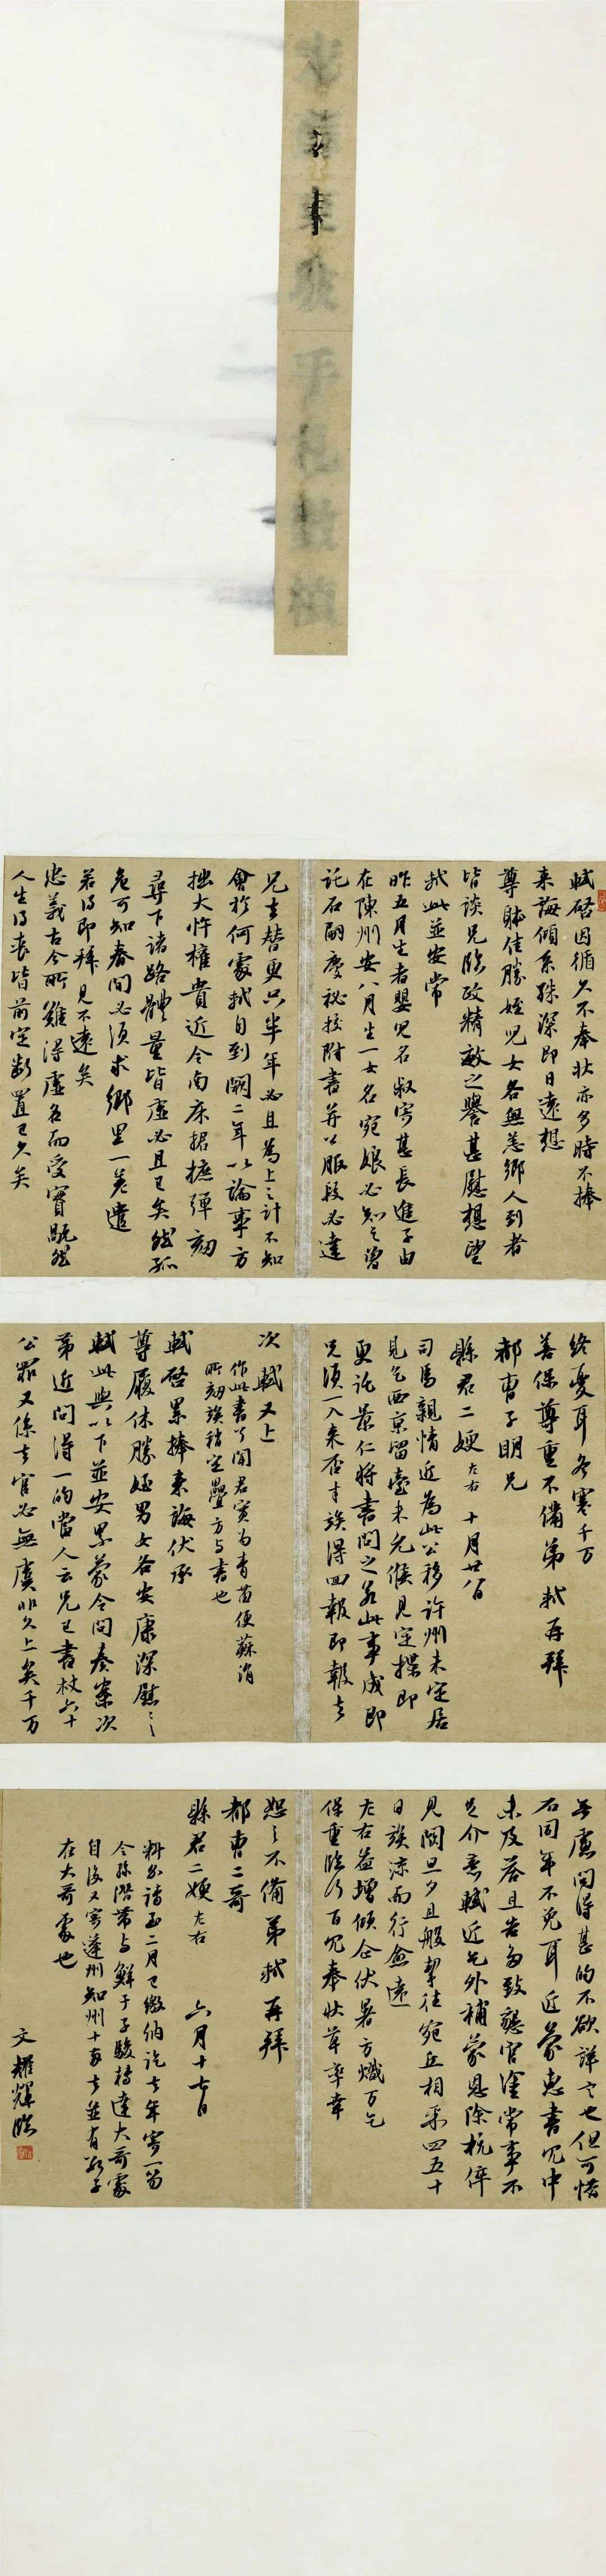 老蘇東坡手札數楨
軾啓因循久不奉狀亦多時不捧
来誨傾系殊深即日遠想
尊體佳勝姪兒女各無恙鄉人到者
皆談兄臨政精敏之譽甚慰想望
軾此並安常
昨五月生者嬰兒名叔寄甚長進子由
在陳州安八月生一女名宛娘必知之曾
託石嗣慶秘校附書并公服段必達
兄去替更只半年必且為上之計不知
會於何處軾自到闕二年以論事方
拙大忤權貴近令南床捃摭彈劾
尋下諸路體量皆虛必且已矣然孤
危可知春間必須求鄉里一差遣
若得即拜見不遠矣
忠義古今所難得虛名而受實禍然
人生得喪皆前定斷置已久矣
終憂耳冬寒千万
善保尊重不備弟軾再拜
都曹子明兄
縣君二嫂左右 十月廿八日
司馬親情近為此公移許州未定居
見乞西京留臺未允候見定揲即
更託景仁將書問之若此事成即
兄須一入来否才候得回報即報去
次軾又上
作此書了聞君實為青苗使蘇涓
所劾候稍定疊方与書也
軾啓累捧来誨伏承
尊履休勝姪男女各安康深慰之
軾此與以下並安累蒙令問奏案次
第近問得一的當人云兄已書杖六十
公罪又係去官必無虞非久上矣千万
無慮問得甚的不欲詳言也但可惜
石同年不免耳近蒙惠書冗中
未及荅且告多致懇官塗常事不
足介意軾近乞外補蒙恩除杭倅
見闕旦夕且般挈往宛丘相聚四五十
日候涼而行愈遠
左右益增傾企伏暑方熾万乞
保重臨行百冗奉狀草率幸
恕之不備弟軾再拜
都曹二哥
縣君二嫂左右 六月十七日
料錢請至二月已繳納訖去年寄一笛
令孫潛帶与鮮于子駿轉達大哥處
自後又寄蓬州知州十兩去並有歌子
在大哥處也
文耀輝臨